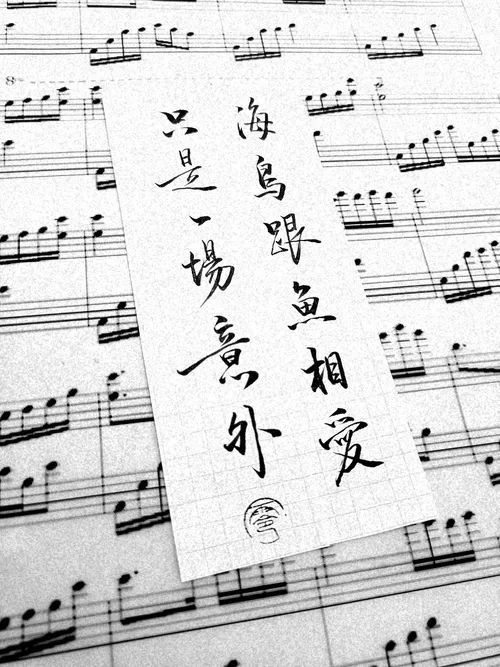 海鳥跟魚相愛
只是一場意外